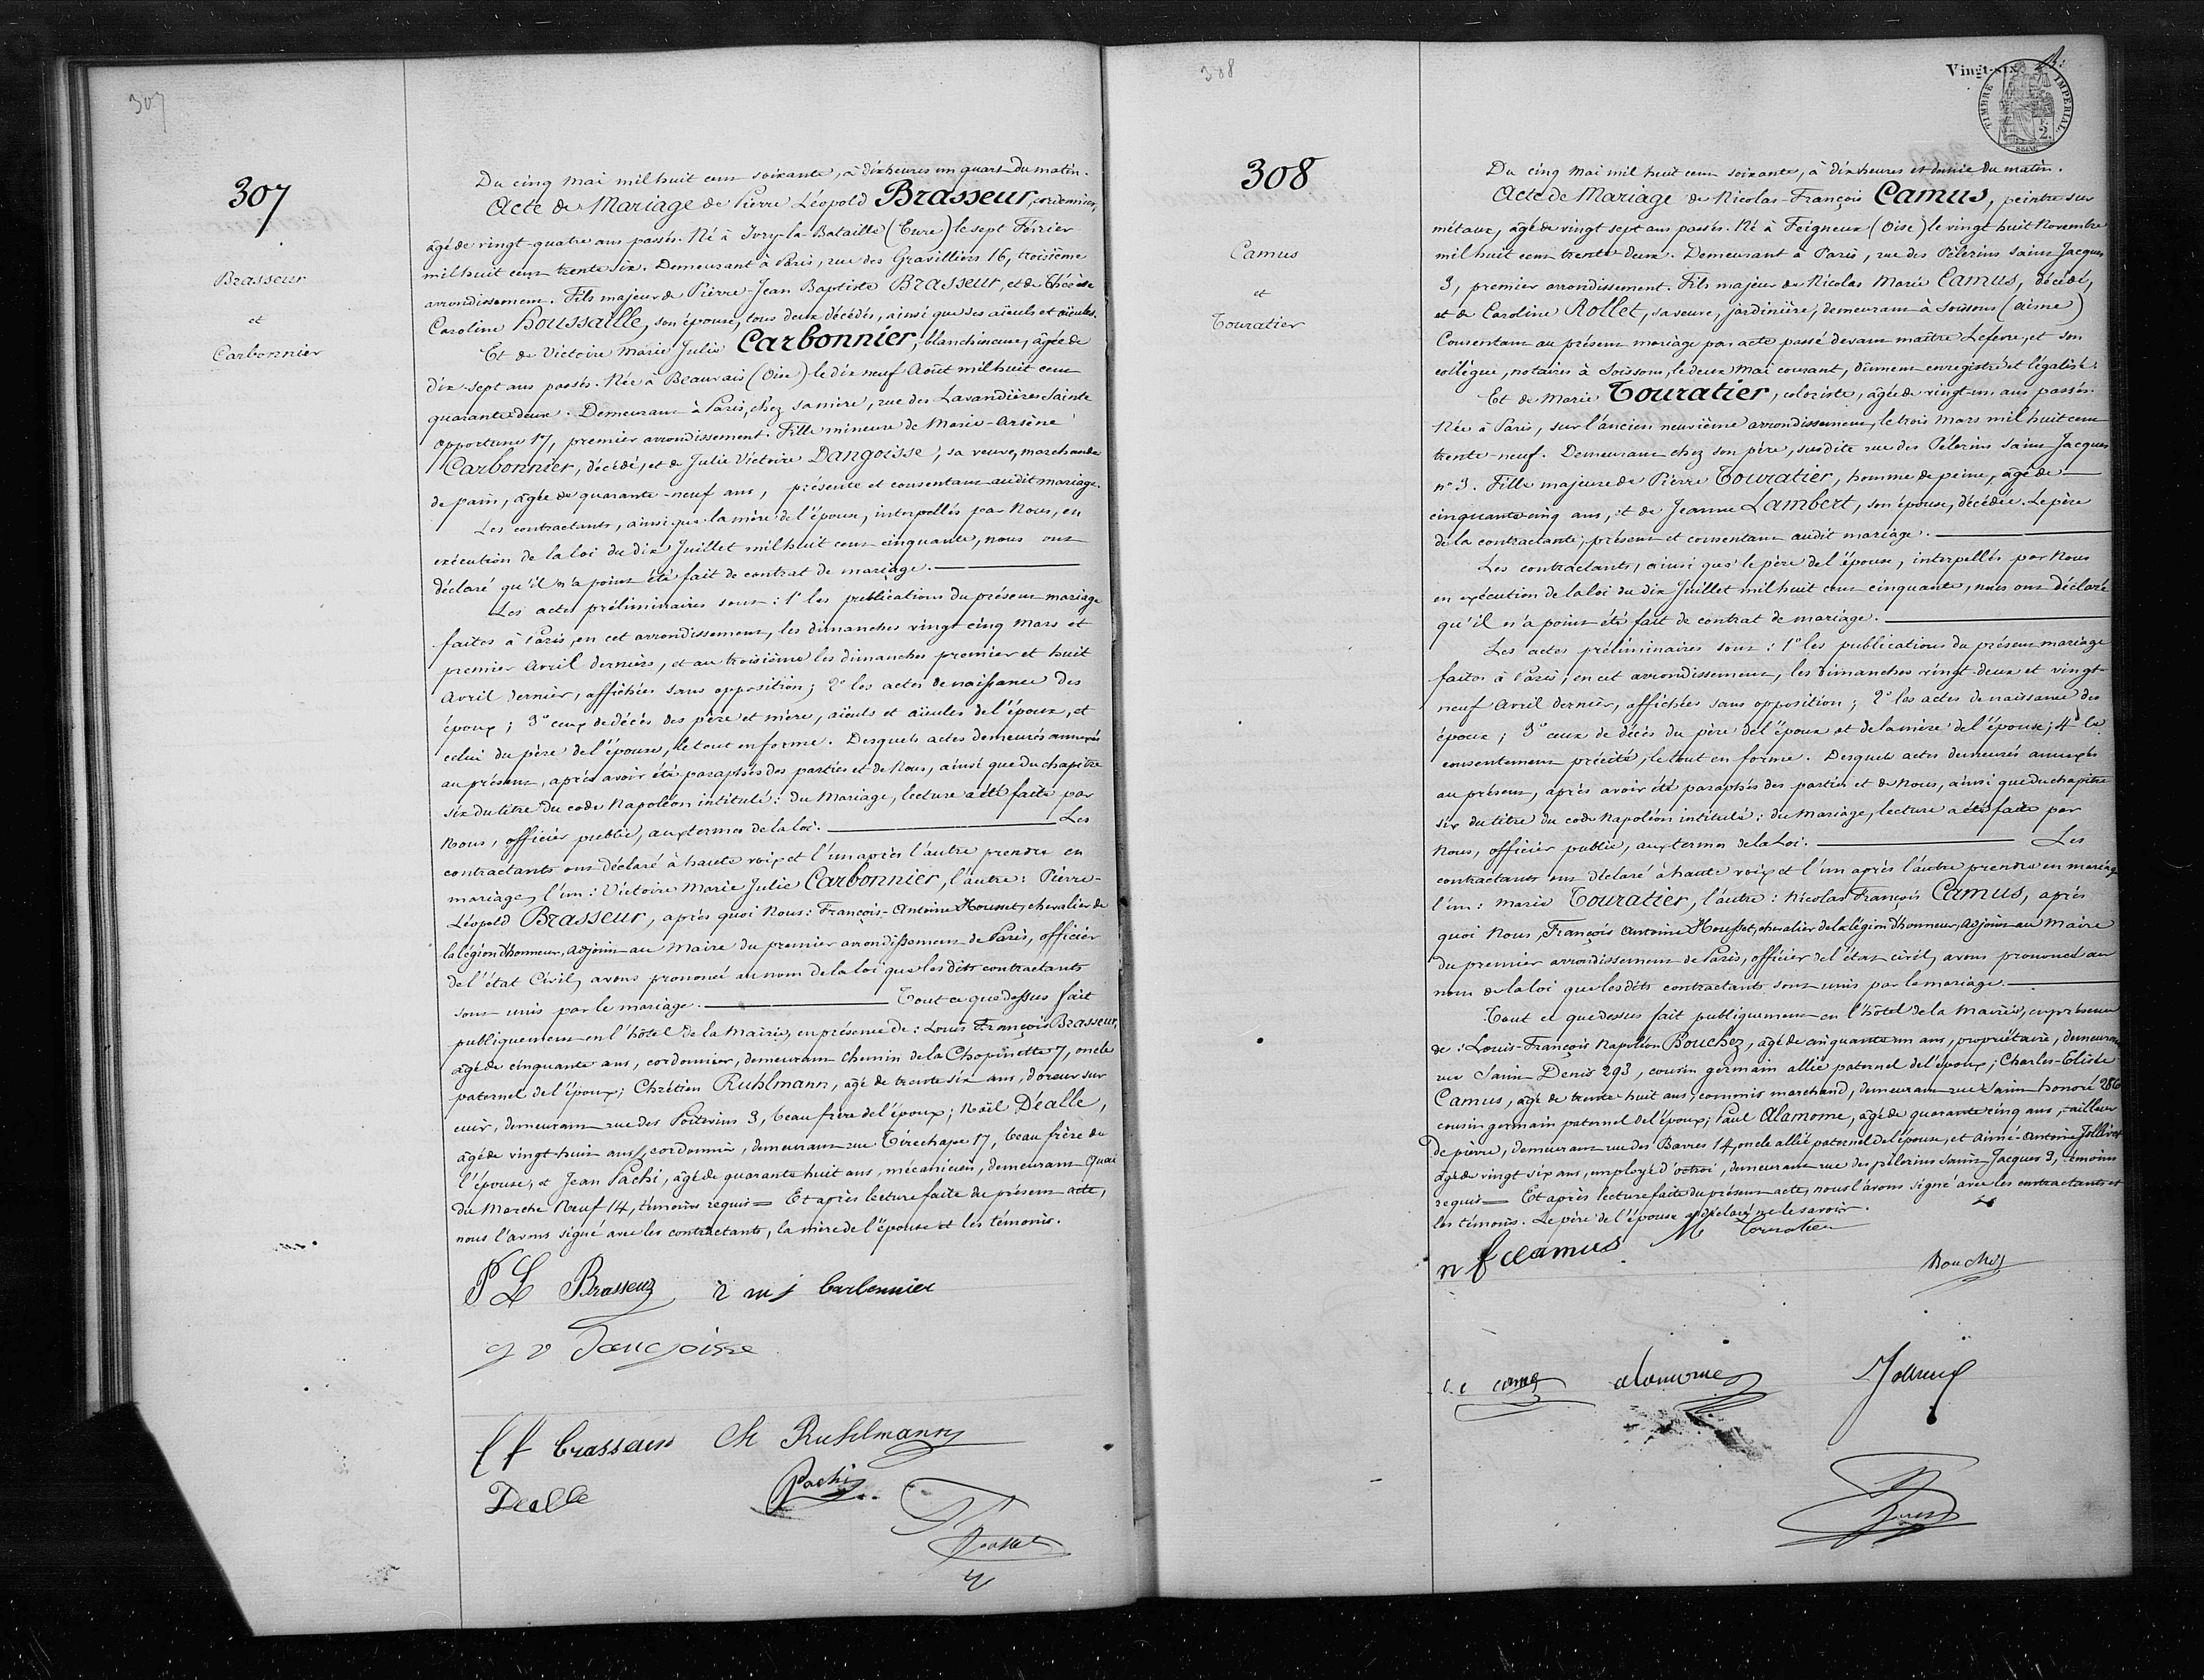 307
307
Brasseur
et
Carbonnier
Du cinq Mai mil huit cent soixante, à dix heures un quart du matin.
Acte de Mariage de Pierre Léopold Brasseur, cordonnier,
âgé de vingt-quatre ans passés. Né à Ivry-la-Bataille (Eure) le sept Février
mil huit cent trente six. Demeurant à Paris, rue des Gravilliers 16, troisième
arrondissement. Fils majeur de Pierre-Jean Baptiste Brasseur, et de Thérèse
Caroline Houssaille, son épouse, tous deux décédés, ainsi que ses aïeuls et aïeules.
Et de Victoire Marie Julie Carbonnier, blanchisseuse, âgée de
dix-sept ans passés. Née à Beauvais (Oise) le dix neuf Août mil huit cent
quarante deux. Demeurant à Paris, chez sa mère, rue des Lavandières Sainte
Opportune 17, premier arrondissement. Fille mineure de Marie-Arsène
Carbonnier, décédé, et de Julie Victoire Dangoisse, sa veuve, marchande
de pain, âgée de quarante-neuf ans, présente et consentant audit mariage.
Les contractants, ainsi que la mère de l'épouse, interpellés par Nous, en
exécution de la loi du dix Juillet mil huit cent cinquante, nous ont
déclaré qu'il n'a point été fait de contrat de mariage.
Les actes préliminaires sont: 1° les publications du présent mariage
faites à Paris, en cet arrondissement, les dimanches vingt cinq Mars et
premier Avril derniers, et au troisième les dimanches premier et huit
Avril dernier, affichées sans opposition; 2° les actes de naissance des
époux; 3° ceux de décès des père et mère, aïeuls et aïeules de l'époux, et
celui du père de l'épouse, le tout en forme. Desquels actes demeurés annexés
au présent, après avoir été paraphés des parties et de Nous, ainsi que du chapitre
six du titre du code Napoléon intitulé: du Mariage, lecture a été faite par
Nous, officier public, aux termes de la loi. Les
contractants ont déclaré à haute voix et l'un après l'autre prendre en
mariage, l'un: Victoire Marie Julie Carbonnier, l'autre: Pierre-
Léopold Brasseur, après quoi Nous: François-Antoine Housset, chevalier de
la légion d'honneur, Adjoint au Maire du premier arrondissement de Paris, officier
de l'état Civil, avons prononcé au nom de la loi que lesdits contractants
sont unis par le mariage. Tout ce que dessus fait
publiquement en l'hôtel de la Mairie, en présence de: Louis François Brasseur,
âgé de cinquante ans, cordonnier, demeurant Chemin de la Chopinette 7, oncle
paternel de l'époux; Chrétien Ruhlmann, âgé de trente six ans, doreur sur
cuir, demeurant rue des Poitevins 3, beau frère de l'époux; Noël Déalle,
âgé de vingt-huit ans, cordonnier, demeurant rue Tirechape 17, beau frère de
l'épouse, et Jean Pachi, âgé de quarante huit ans, mécanicien, demeurant Quai
du Marché Neuf 14, témoins requis = Et après lecture faite du présent acte,
nous l'avons signé avec les contractants, la mère de l'épouse et les témoins.
P L Brasseur v m j Carbonnier
j v Dangoisse
l f brasseur Ch Ruhlmann
Dealle Pachi
308
Vingt-six
TIMBRE IMPÉRIAL
2.
SEINE
308
Camus
et
Touratier
Du cinq Mai mil huit cent soixante, à dix heures et demie du matin.
Acte de Mariage de Nicolas-François Camus, peintre sur
métaux, âgé de vingt sept ans passés. Né à Feigneux (Oise) le vingt huit Novembre
mil huit cent trente-deux. Demeurant à Paris, rue des Pèlerins Saint Jacques
3, premier arrondissement. Fils majeur de Nicolas Marie Camus, décédé,
et de Caroline Rollet, sa veuve, jardinière, demeurant à Soissons (aisne)
Consentant au présent mariage par acte passé devant maître Lefevre, et son
collègue, notaires à Soissons, le deux Mai courant, dûment enregistré et légalisé.
Et de Marie Touratier, coloriste, âgée de vingt-un ans passés.
Née à Paris, sur l'ancien neuvième arrondissement, le trois Mars mil huit cent
trente-neuf. Demeurant chez son père, susdite rue des Pèlerins Saint-Jacques
n° 3. Fille majeure de Pierre Touratier, homme de peine, âgé de
cinquante cinq ans, et de Jeanne Lambert, son épouse, décédée. Le père
de la contractante, présent et consentant audit mariage.
Les contractants, ainsi que le père de l'épouse, interpellés par Nous
en exécution de la loi du dix Juillet mil huit cent cinquante, nous ont déclaré
qu'il n'a point été fait de contrat de mariage.
Les actes préliminaires sont: 1° les publications du présent mariage
faites à Paris, en cet arrondissement, les dimanches vingt-deux et vingt-
neuf Avril dernier, affichées sans opposition; 2° les actes de naissance des
époux; 3° ceux de décès du père de l'époux et de la mère de l'épouse; 4° le
consentement précité, le tout en forme. Desquels actes demeurés annexés
au présent, après avoir été paraphés des parties et de Nous, ainsi que du chapitre
six du titre du code Napoléon intitulé: du Mariage, lecture a été faite par
Nous, officier public, aux termes de la Loi. Les
contractants ont déclaré à haute voix et l'un après l'autre prendre en mariage
l'un: Marie Touratier, l'autre: Nicolas François Camus, après
quoi Nous, François Antoine Housset, chevalier de la légion d'honneur, Adjoint au Maire
du premier arrondissement de Paris, officier de l'état civil, avons prononcé au
nom de la loi que lesdits contractants sont unis par le mariage.
Tout ce que dessus fait publiquement en l'hôtel de la Mairie, en présence
de: Louis-François Napoléon Bouchez, âgé de cinquante un ans, propriétaire, demeurant
rue Saint Denis 293, cousin germain allié paternel de l'époux; Charles-Elisée
Camus, âgé de trente-huit ans, commis marchand, demeurant rue Saint honoré 286
cousin germain paternel de l'époux; Paul Alamome, âgé de quarante cinq ans, tailleur
de pierre, demeurant rue des Barres 14, oncle allié paternel de l'épouse, et Aimé-Antoine Jollivet
âgé de vingt six ans, employé d'octroi, demeurant rue des pèlerins Saint Jacques 3, témoins
requis — Et après lecture faite du présent acte, nous l'avons signé avec les contractants et
les témoins. Le père de l'épouse a déclaré ne le savoir.
n f camus M Touratier
Bouchez
c e camus alamome